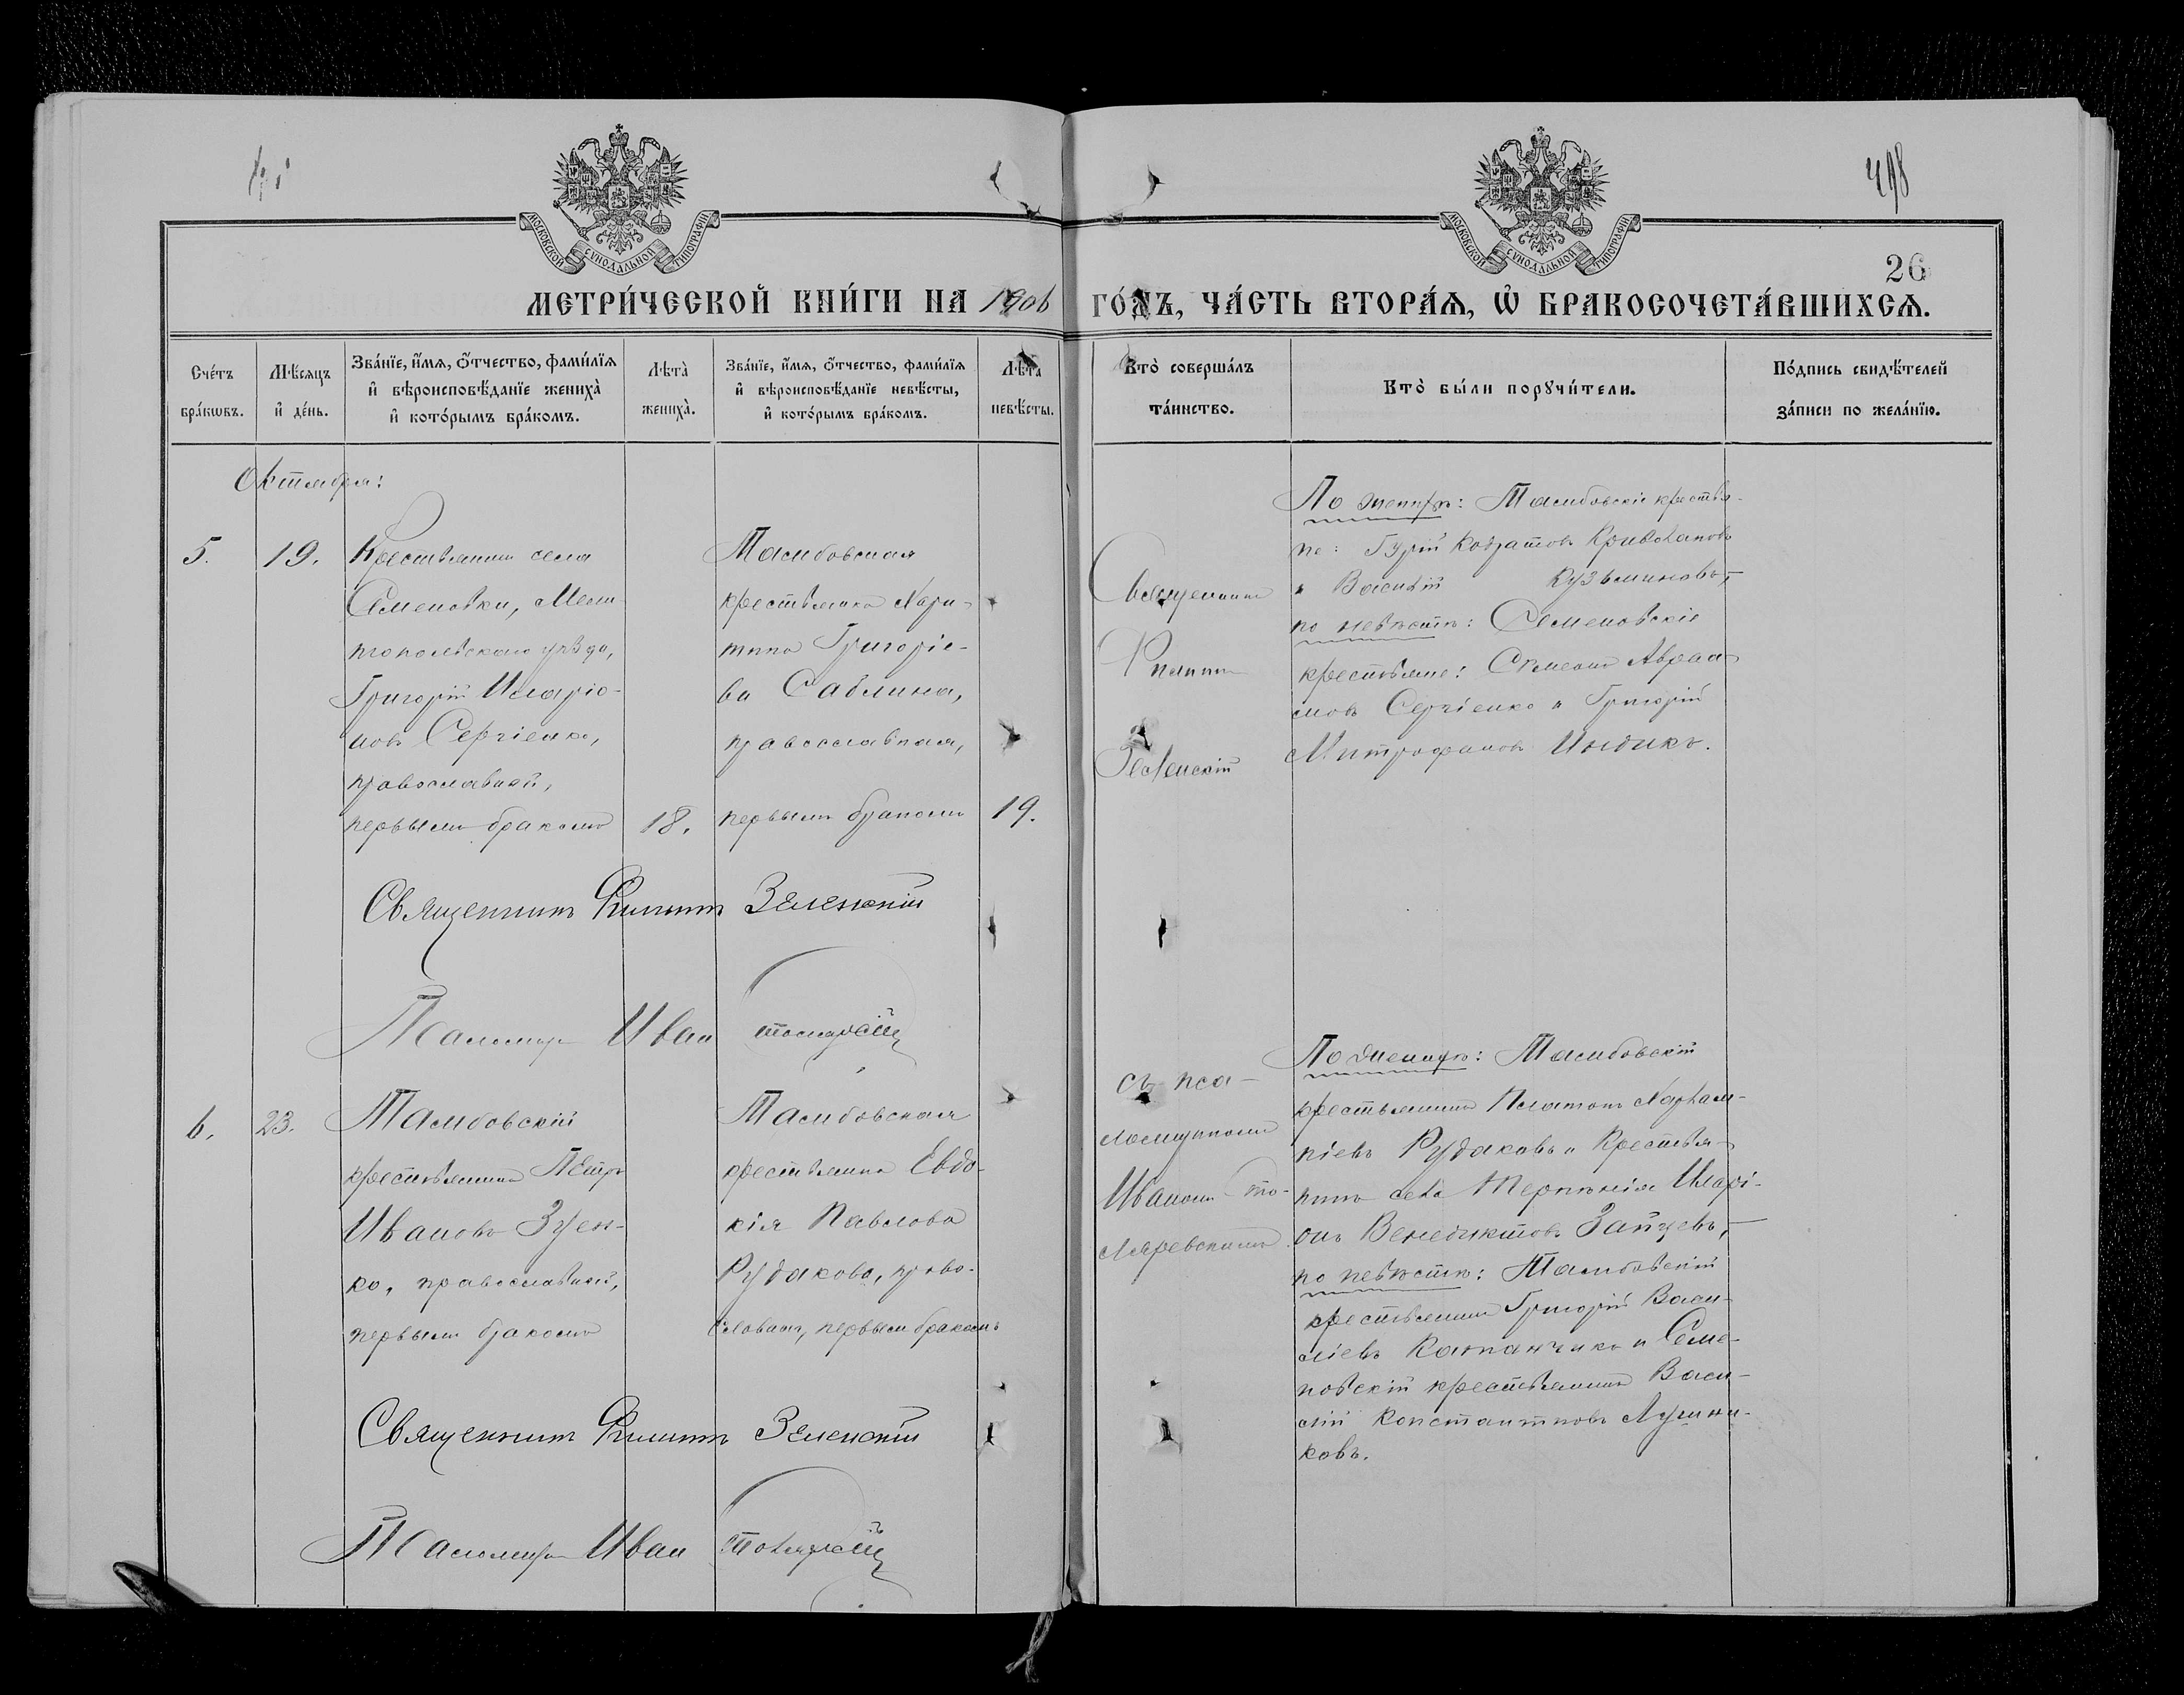 498
26
МОСКОВСКОЙ СѴНОДАЛЬНОЙ ТИПОГРАФІИ
МОСКОВСКОЙ СѴНОДАЛЬНОЙ ТИПОГРАФІИ
МЕТРИ́ЧЕСКОЙ КНИ́ГИ НА 1906 ГО́ДЪ, ЧА́СТЬ ВТОРА́Я, Ѡ БРАКОСОЧЕТА́ВШИХСЯ.
Сче́тъ
бра́кѡвъ.
Мѣ́сяцъ
и҆ де́нь.
Зва́нїе, и҆́мя, ѻ҆́тчество, фами́лїя
и҆ вѣроисповѣ́данїе жениха̀
и҆ кото́рымъ бра́комъ.
Лѣта̀
жениха̀.
Зва́нїе, и҆́мя, ѻ҆́тчество, фами́лїя
и҆ вѣроисповѣ́данїе невѣ́сты,
и҆ кото́рымъ бра́комъ.
Лѣта̀
невѣ́сты.
Кто̀ соверша́лъ
та́инство.
Кто̀ бы́ли порꙋчи́тели.
По́дпись свидѣ́телей
за́писи по жела́нїю.
Октября:
5.
19.
Крестьянинъ села
Семеновки, Мели-
топольскаго уѣзда,
Григорій Иларіо-
новъ Сергіенко,
православный,
первымъ бракомъ
18.
Тамбовская
крестьянка Хари-
тина Григоріе-
ва Саблина,
православная,
первымъ бракомъ
19.
Священникъ
Филиппъ
Зеленскій
По женихѣ: Тамбовскіе крестья-
не: Гурій
и Василій Кузьминовъ,
по невѣстѣ: Семеновскіе
крестьяне: Симеонъ Авраа-
мовъ Сергіенко и Григорій
Митрофановъ Индикъ.
Священникъ Филиппъ Зеленскій
Псаломщ Иван
6.
23.
Тамбовскій
крестьянинъ Петръ
Ивановъ Зуен-
ко, православный,
первымъ бракомъ
Тамбовская
крестьянка Евдо-
кія Павлова
Рудакова, право-
славная, первымъ бракомъ
съ пса-
ломщикомъ
Иваномъ Сто-
ляревскимъ
По женихѣ: Тамбовскій
крестьянинъ Платонъ Харлам-
піевъ Рудаковъ и крестья-
нинъ села Терпѣнія Илари-
онъ Венедиктовъ Зайцевъ,
по невѣстѣ: Тамбовскій
крестьянинъ Григорій Васи-
ліевъ и Семе-
новскій крестьянинъ Васи-
лій Константиновъ Лушни-
ковъ.
Священникъ Филиппъ Зеленскій
Псаломщ Иван